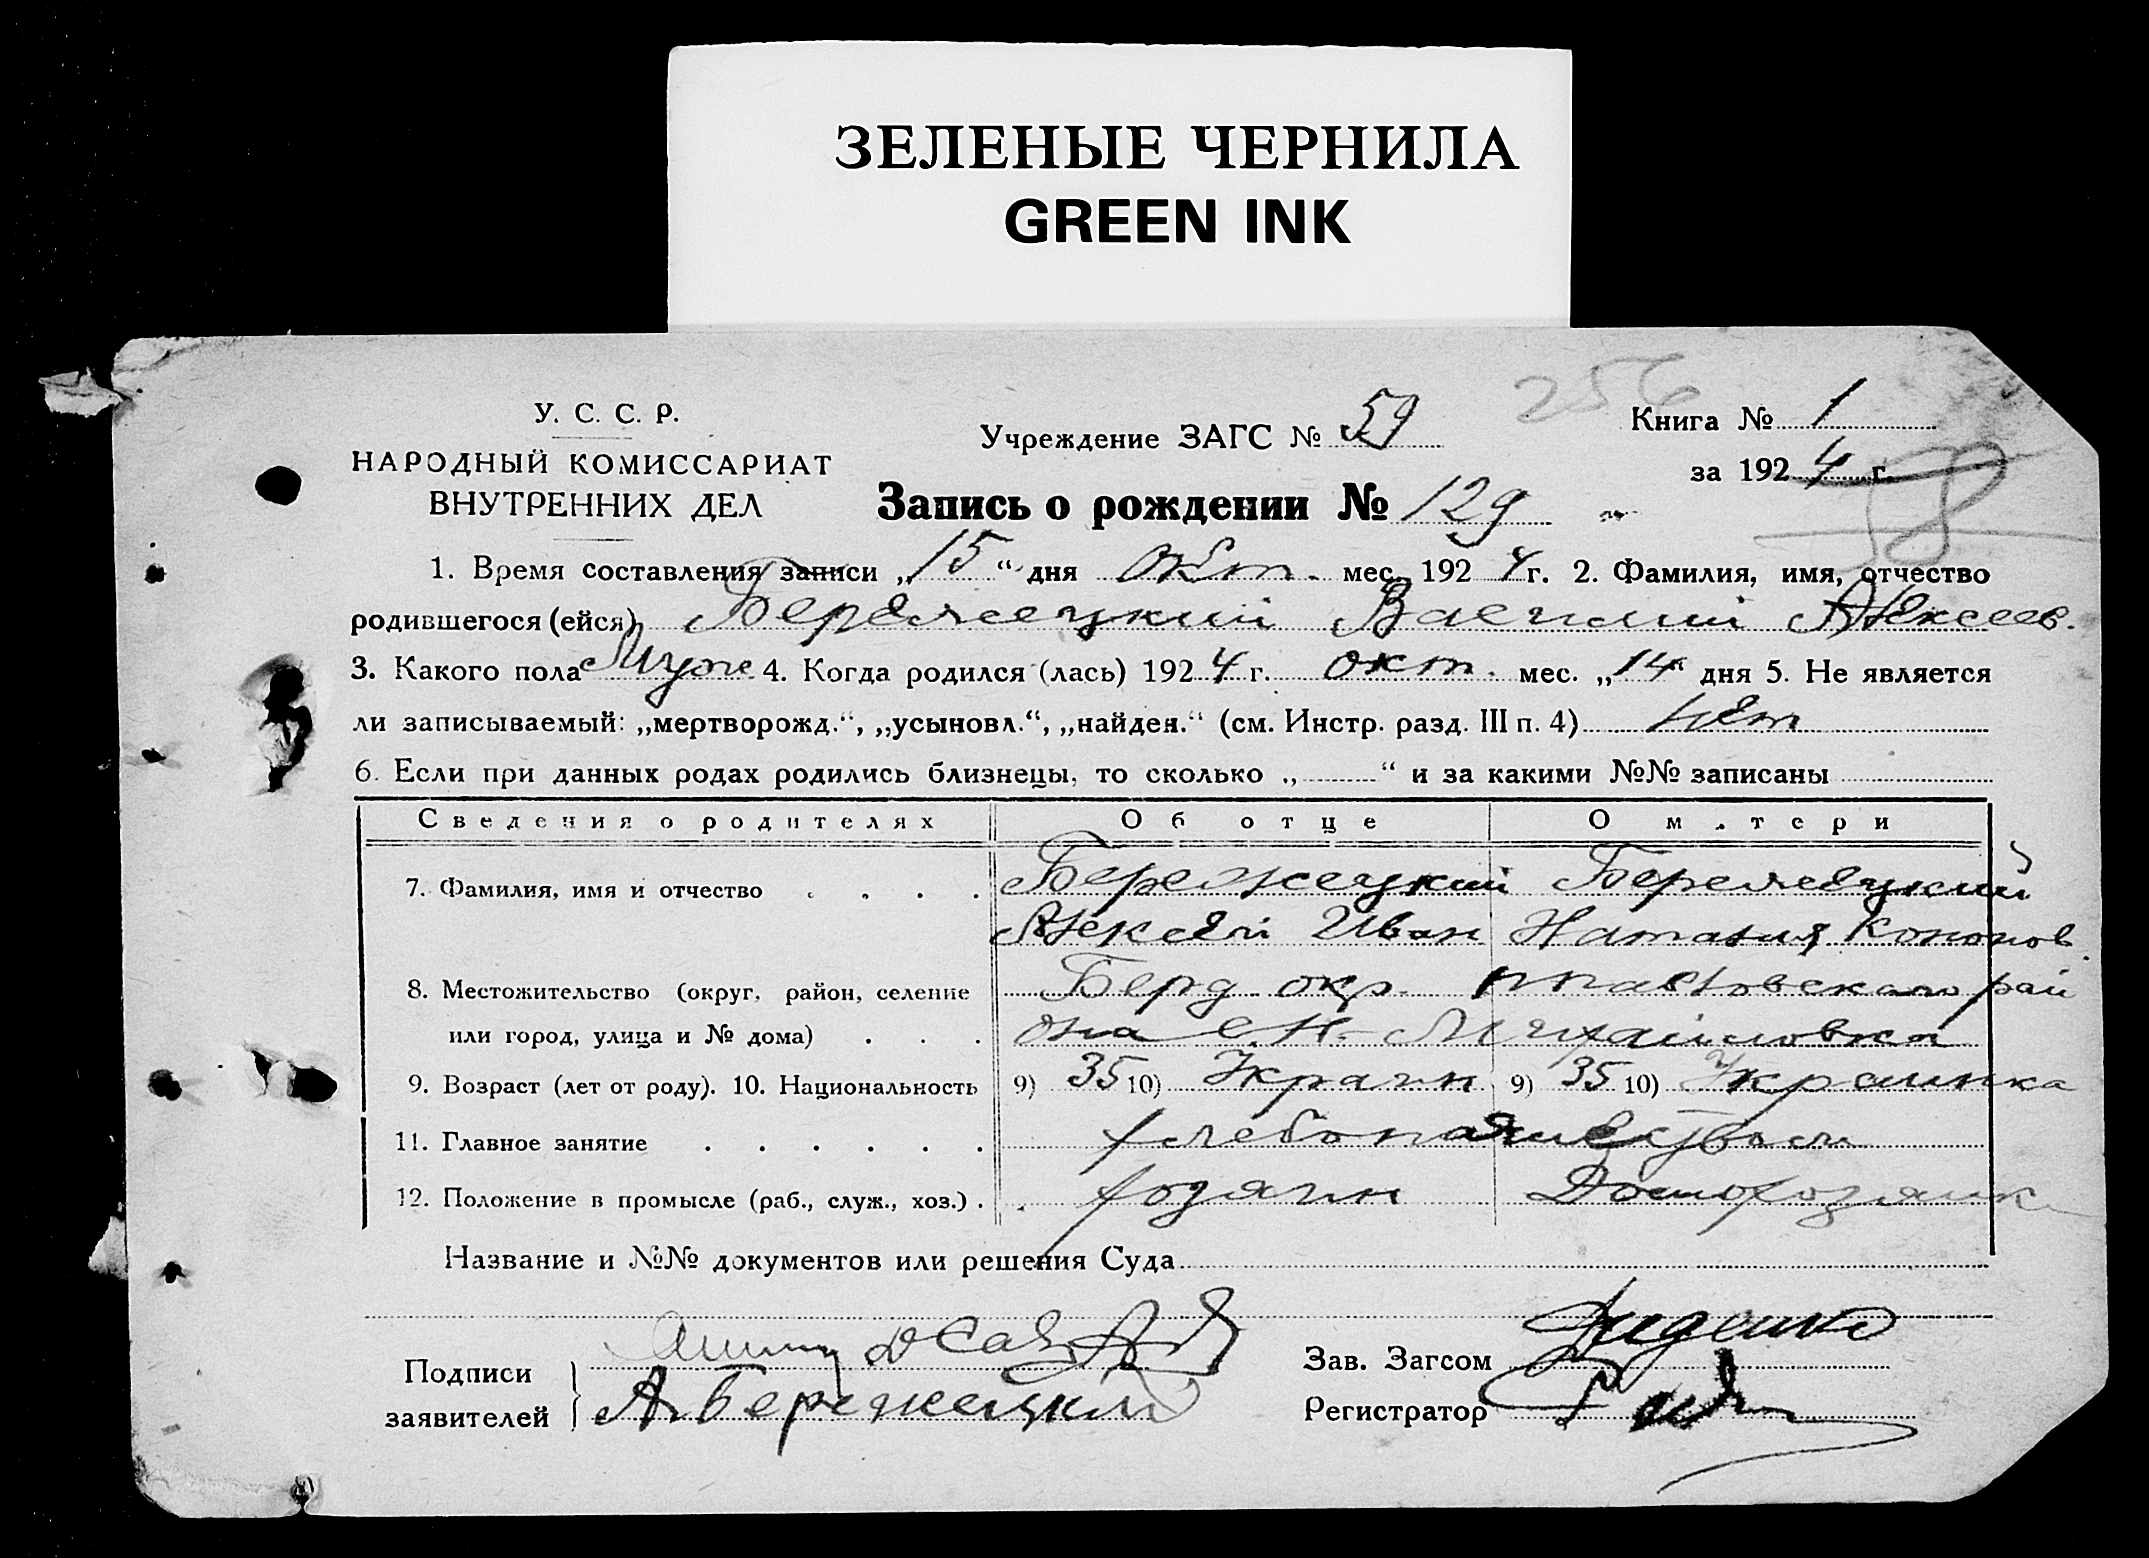 ЗЕЛЕНЫЕ ЧЕРНИЛА
GREEN INK
256
У. С. С. Р.
НАРОДНЫЙ КОМИССАРИАТ
ВНУТРЕННИХ ДЕЛ
Учреждение ЗАГС № 59
Книга № 1
за 1924 г.
58
Запись о рождении № 129
1. Время составления записи „15“ дня окт. мес. 1924 г. 2. Фамилия, имя, отчество
родившегося (ейся) Бережецкий Василий Алексеев.
3. Какого пола Муж 4. Когда родился (лась) 1924 г. окт. мес. „14“ дня 5. Не является
ли записываемый: „мертворожд.“, „усыновл.“, „найден.“ (см. Инстр. разд. III п. 4) нет
6. Если при данных родах родились близнецы, то сколько „ “ и за какими №№ записаны
Сведения о родителях Об отце О матери
7. Фамилия, имя и отчество Бережецкий Бережецкий
Алексей Иван Наталия Кононов
8. Местожительство (округ, район, селение Берд окр. рай
или город, улица и № дома) она с. Н. Михайловка
9. Возраст (лет от роду). 10. Национальность 9) 35 10) Украин 9) 35 10) Украинка
11. Главное занятие хлебопашество
12. Положение в промысле (раб., служ., хоз.) хозяин Домохозяйк
Название и №№ документов или решения Суда
Подписи
заявителей А Бережецкий
Зав. Загсом Диденко
Регистратор